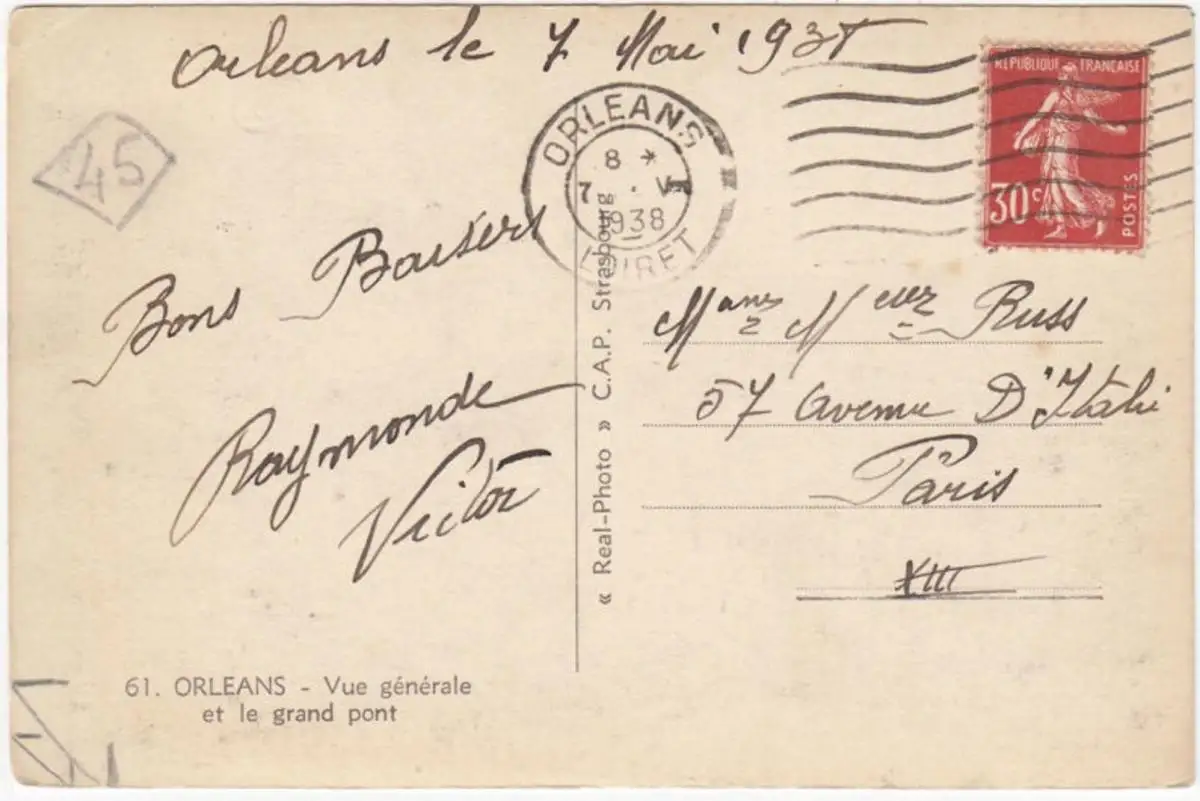 Orleans le 7 Mai 1938
45
ORLEANS
8 *
7 . V
1938
LOIRET
REPUBLIQUE FRANÇAISE
30c
POSTES
Bons Baisers
Raymonde
Victor
Russ
57 avenue D'Itali
Paris
XIII
« Real-Photo » C.A.P. Strasbourg
61. ORLEANS - Vue générale
et le grand pont